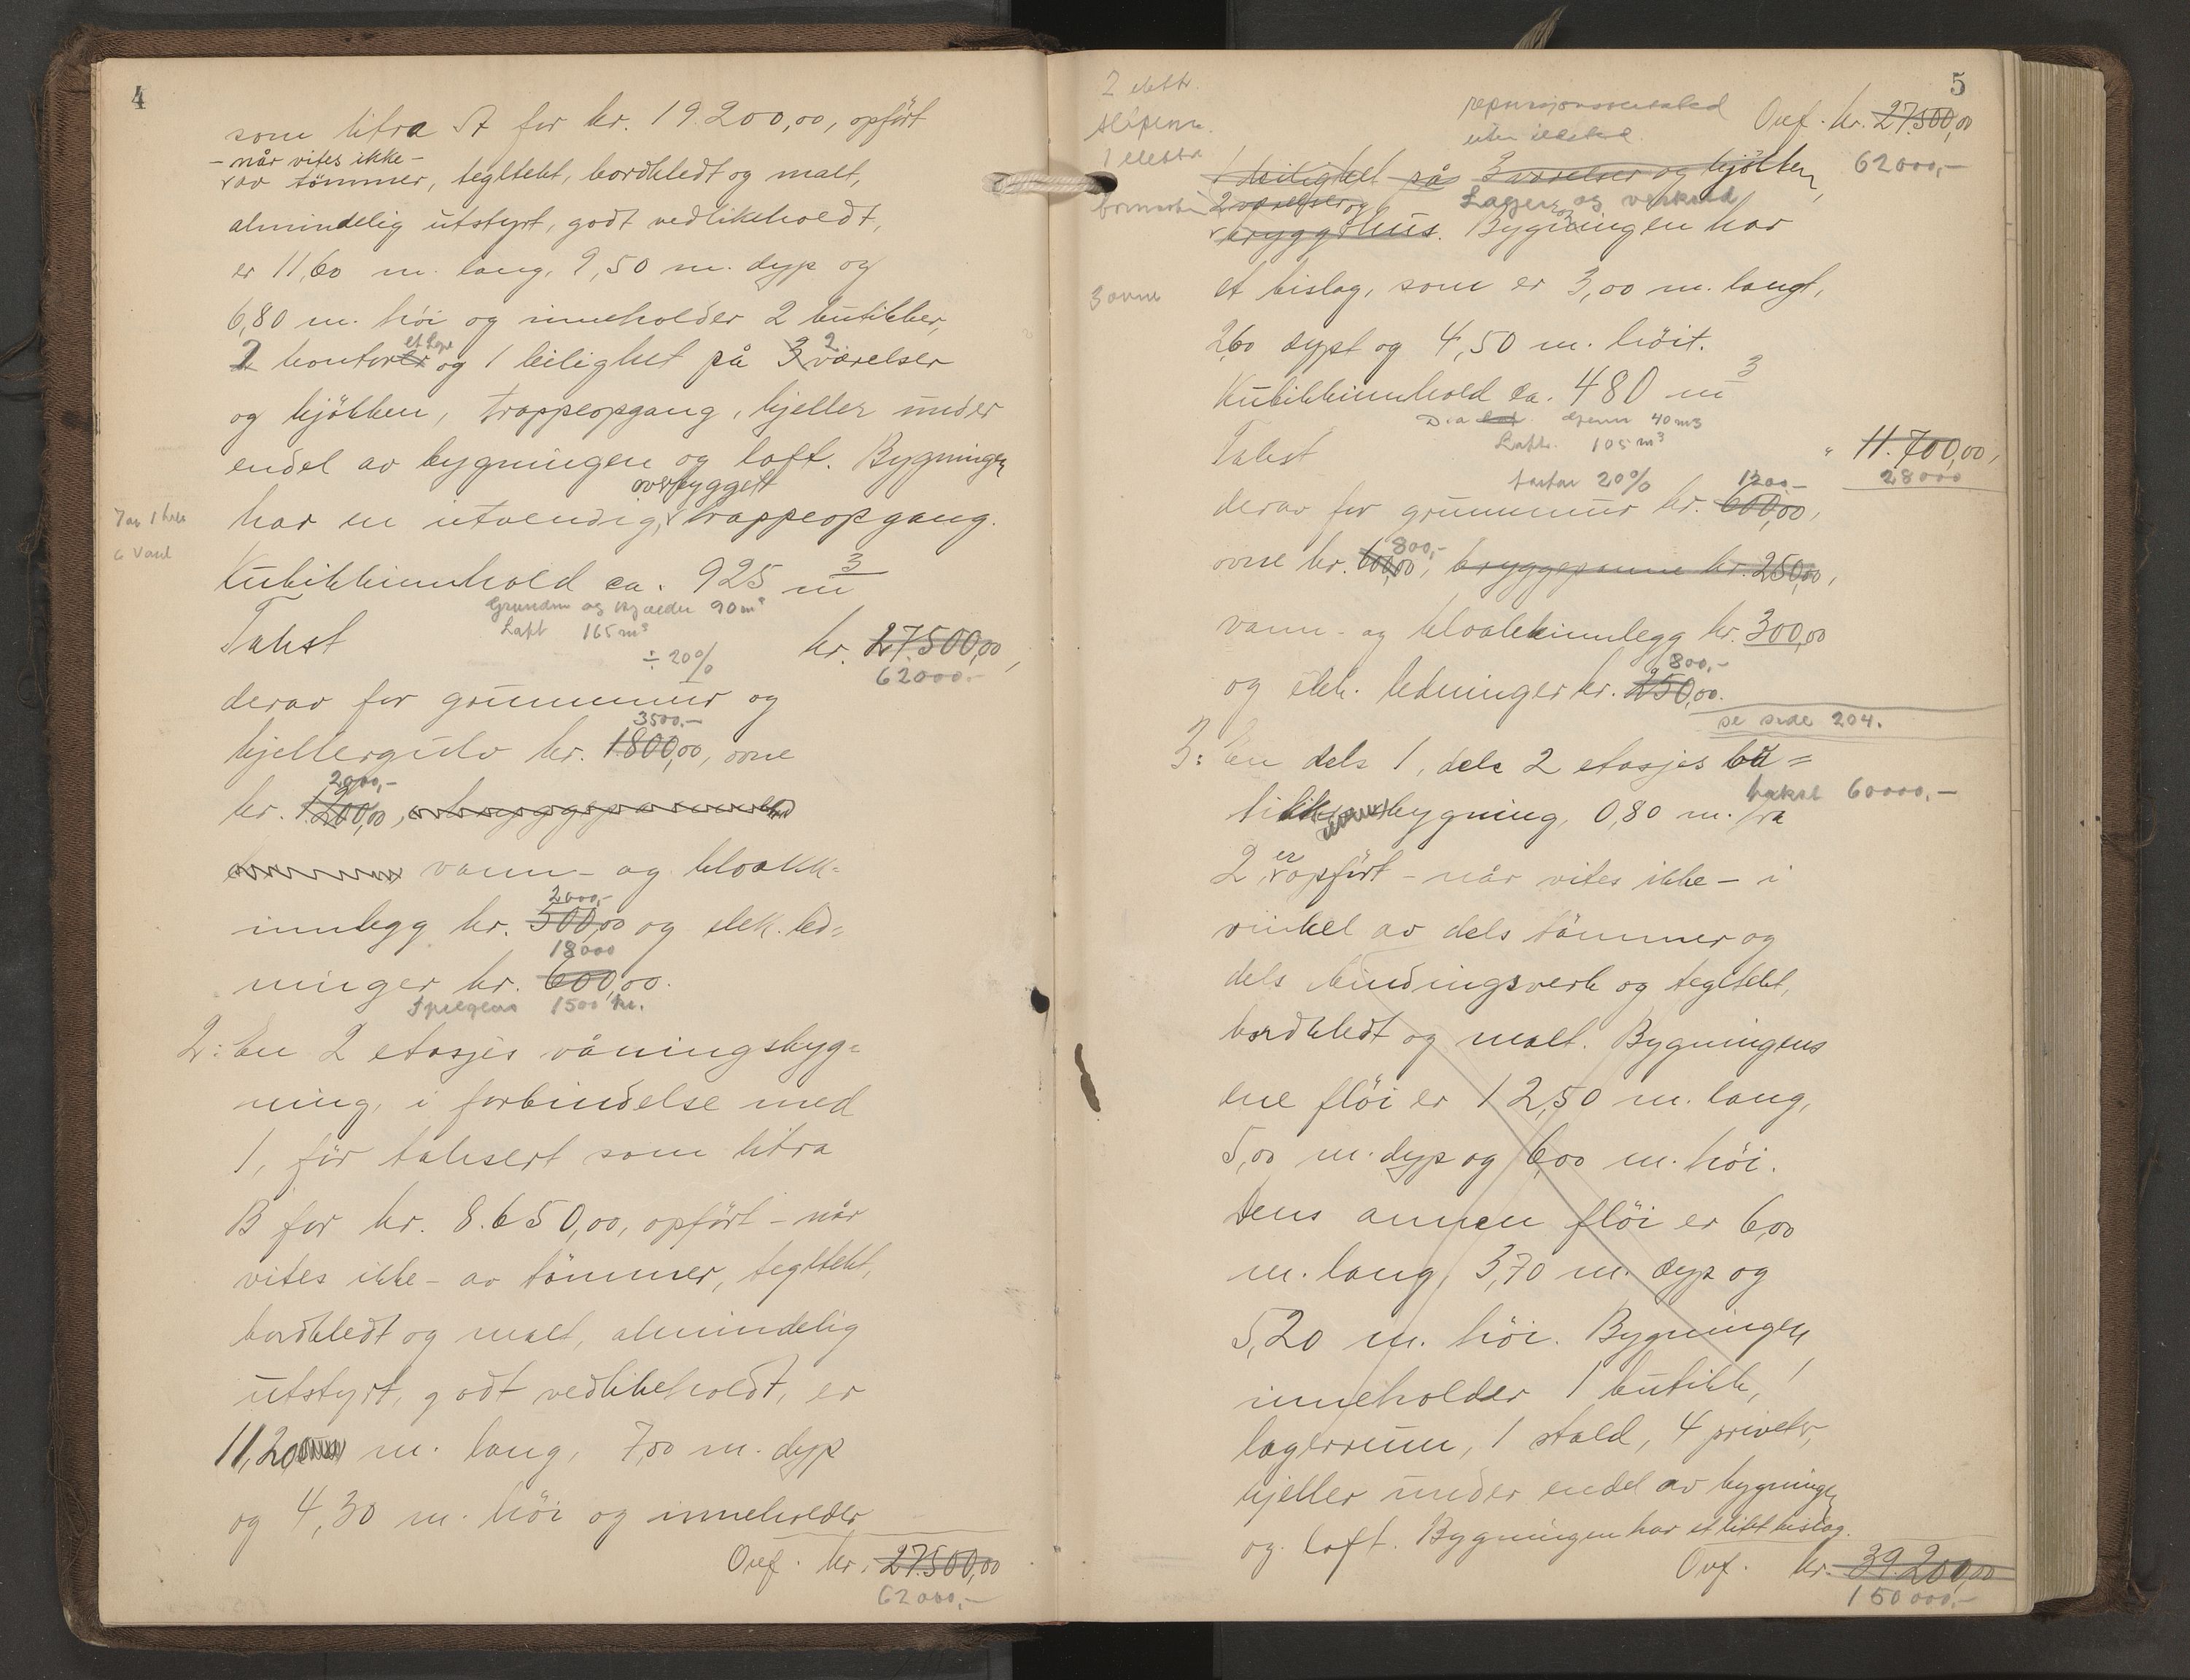 4
som litra A for kr. 19200,00, opført
- når vites ikke -
av tömmer, tegltekt, bordkledt og malt,
almindelig utstyrt, godt vedlikeholdt,
er 11,60 m. lang, 9,50 m. dyp og
6,80 m. höi og inneholder 2 butikker,
et
2
2 kontorer og 1 leilighet på 3 værelser
og kjökken, trappeopgang, kjeller under
endel av bygningen og loft. Bygningen
overbygget
har en utvendig, trappeopgang.
6
Kubikkinnhold ca. 925 m3
Grundm og kjælder 90 m3
Loft 165 m3
Takst kr. 27.500,00,
÷ 20%
62000.-
derav for grunnmur og
3500.-
kjellergulv kr. 1800,00, ovne
2000,-
kr. 1200,00,
vann- og kloakk-
innlegg kr. 500,00 og elek. led=
2600,-
18000
ninger kr. 600,00.
1500 kr.
2: En 2 etasjes våningsbyg=
ning, i forbindelse med
1, för taksert som litra
B for kr. 8.650,00, opfört - når
vites ikke - av tömmer, tegltekt,
bordkledt og malt, almindelig
utstyrt, godt vedlikeholdt, er
11,20 m. lang, 7,00 m. dyp
og 4,30 m. höi og inneholder
Ovf. kr. 27500,00
62000,-
5
2 elektr.
1 elektr.
3 ovne
Ovf. kr. 27500,00
62000,-
1 leilighet på 3 værelser og kjökken,
2 værelser og
Lager og verksted
bryggehus. Bygningen har
et bislag, som er 3,00 m. langt,
2,60 dypt og 4,50 m. höit.
Kubikkinnhold ca. 480 m3
40 m3
Loft. 105 m3
Takst " 11.700,00,
28000
20%
1200-
derav for grunnmur kr. 600,00,
800,-
ovne kr. 600,00, bryggepanne kr. 250,00,
vann- og kloakkinnlegg kr. 300,00
800,-
og elek. ledninger kr. 250,00.
se side 204.
3: En dels 1, dels 2 etasjes bu=
takst 60000,-
tikkbygning, 0,80 m. fra
er
2, opfört - når vites ikke - i
vinkel av dels tömmer og
dels bindingsverk og tegltekt,
bordkledt og malt. Bygningens
ene flöi er 12,50 m. lang,
5,00 m. dyp og 6,00 m. höi.
Dens annen flöi er 6,00
m. lang, 3,70 m. dyp og
5,20 m. höi. Bygningen
inneholder 1 butikk, 1
lagerrum, 1 stald, 4 priveter,
kjeller under endel av bygningen
og loft. Bygningen har et litt bislag.
Ovf. kr. 39.200,00
150000,-